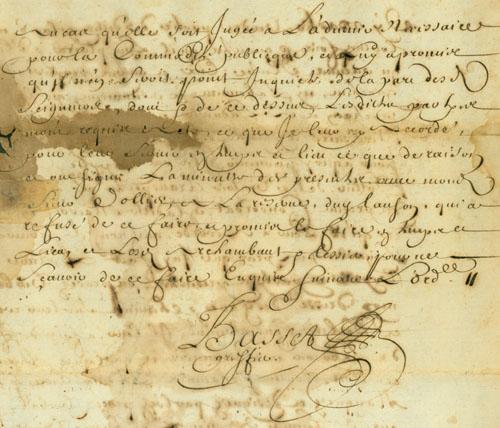 En cas qu'elle soit Jugée a L'advenir Necessaire
pour la Commodité publique, et luy a promis
qu'il n'en seroit point Inquieté de la part des
Seigneurs, dont et de ce dessus Lesdictes parties
mont requis Acte, ce que Je leur ay accordé,
pour leur servir en temps et lieu ce que de raison
et ont signé La minutte des presentes avec mond
Sieur Dollier, a La reserve, dud Lauson, qui a
refusé de ce faire, a promis le faire en temps et
Lieu, et Led Archambaut pd essus, pour ne
Scavoir de ce faire Enquis suivant L'ord.
Basset
greffier